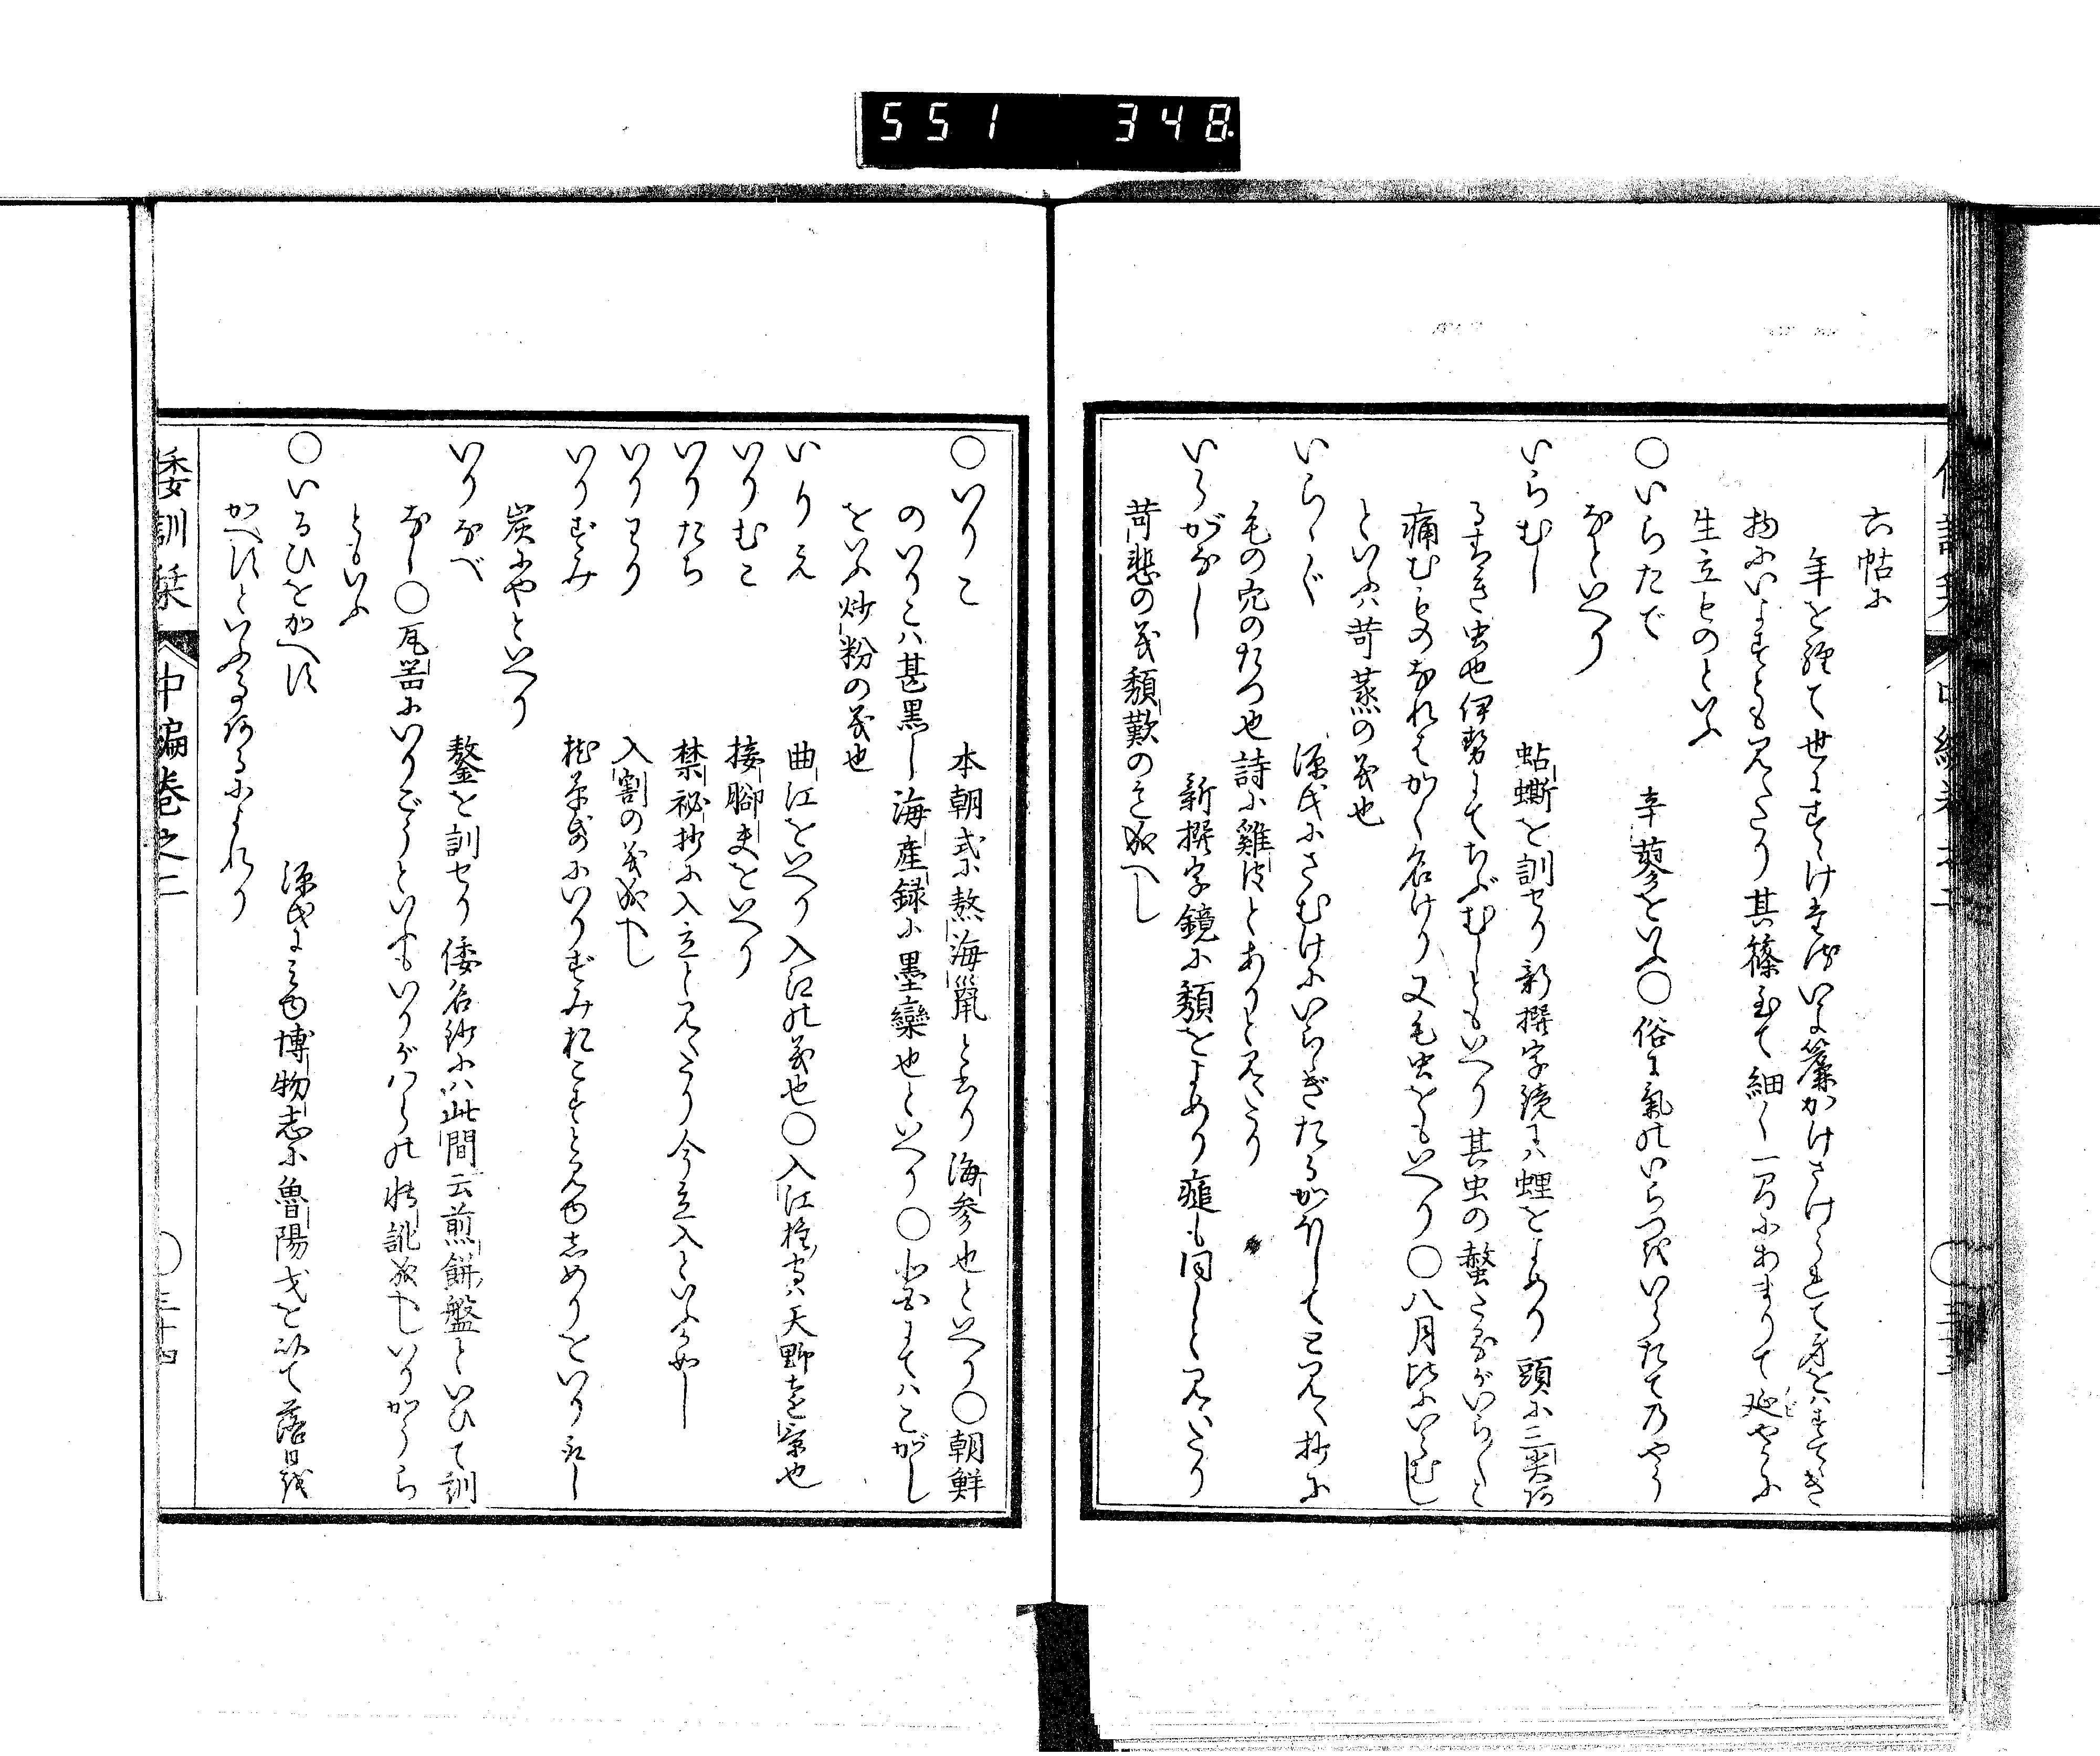 551 348
六帖に
年を経て世にすゝけたるいよ簾かけさけられて身をはすてき
物にいよすとも見えたり其篠至て細く一間にあまりて延やかに
生立ものといふ
○いらたで 辛蓼をいふ○俗に気のいらつをいらたて乃やう
なといへり
いらむし 蛅蟴を訓せり新撰字鏡には蛓とよめり頭に三尖ある
るすき虫也伊勢にてちぶむしともいへり其虫の螫さながいらくと
痛むものなれはかく名けり又毛虫をもいへり○八月比にいらむし
といふは苛蒸の義也
いらゝぐ 源氏にさむけにいらゝぎたるかほしてと見ゆ抄に
毛の穴のたつ也詩に雞皮とありと見えたり
いらがなし 新撰字鏡に頽をよめり㿉も同しと見えたり
苛悲の義頽歎の意成へし
○いりこ 本朝式に熬海鼠と有り海参也といへり○朝鮮
のいりこは甚黒し海産録に墨欒也といへり○北国にてはこがし
をいふ炒粉の義也
いりえ 曲江をいへり入江の義也○入江 天野を
いりむこ 接脚夫をいへり
いりたち 禁秘抄に入立と見えたり今立入といふか如し
いりわり 入割の義成へし
いりずみ 枕草紙にいりずみおこすと見ゆしめりをいりほし
炭にやといへり
いりなべ 鏊を訓せり倭名鈔には此間云煎餅盤といひて訓
なし○瓦器にいりごうといふもいりがはらの転訛成へしいりがうら
ともいふ
○いるひをかへす 源氏に見ゆ博物志に魯陽戈を以て落日を
かへすといふ事あるによれり
倭訓栞 中編巻之二 ○三十四